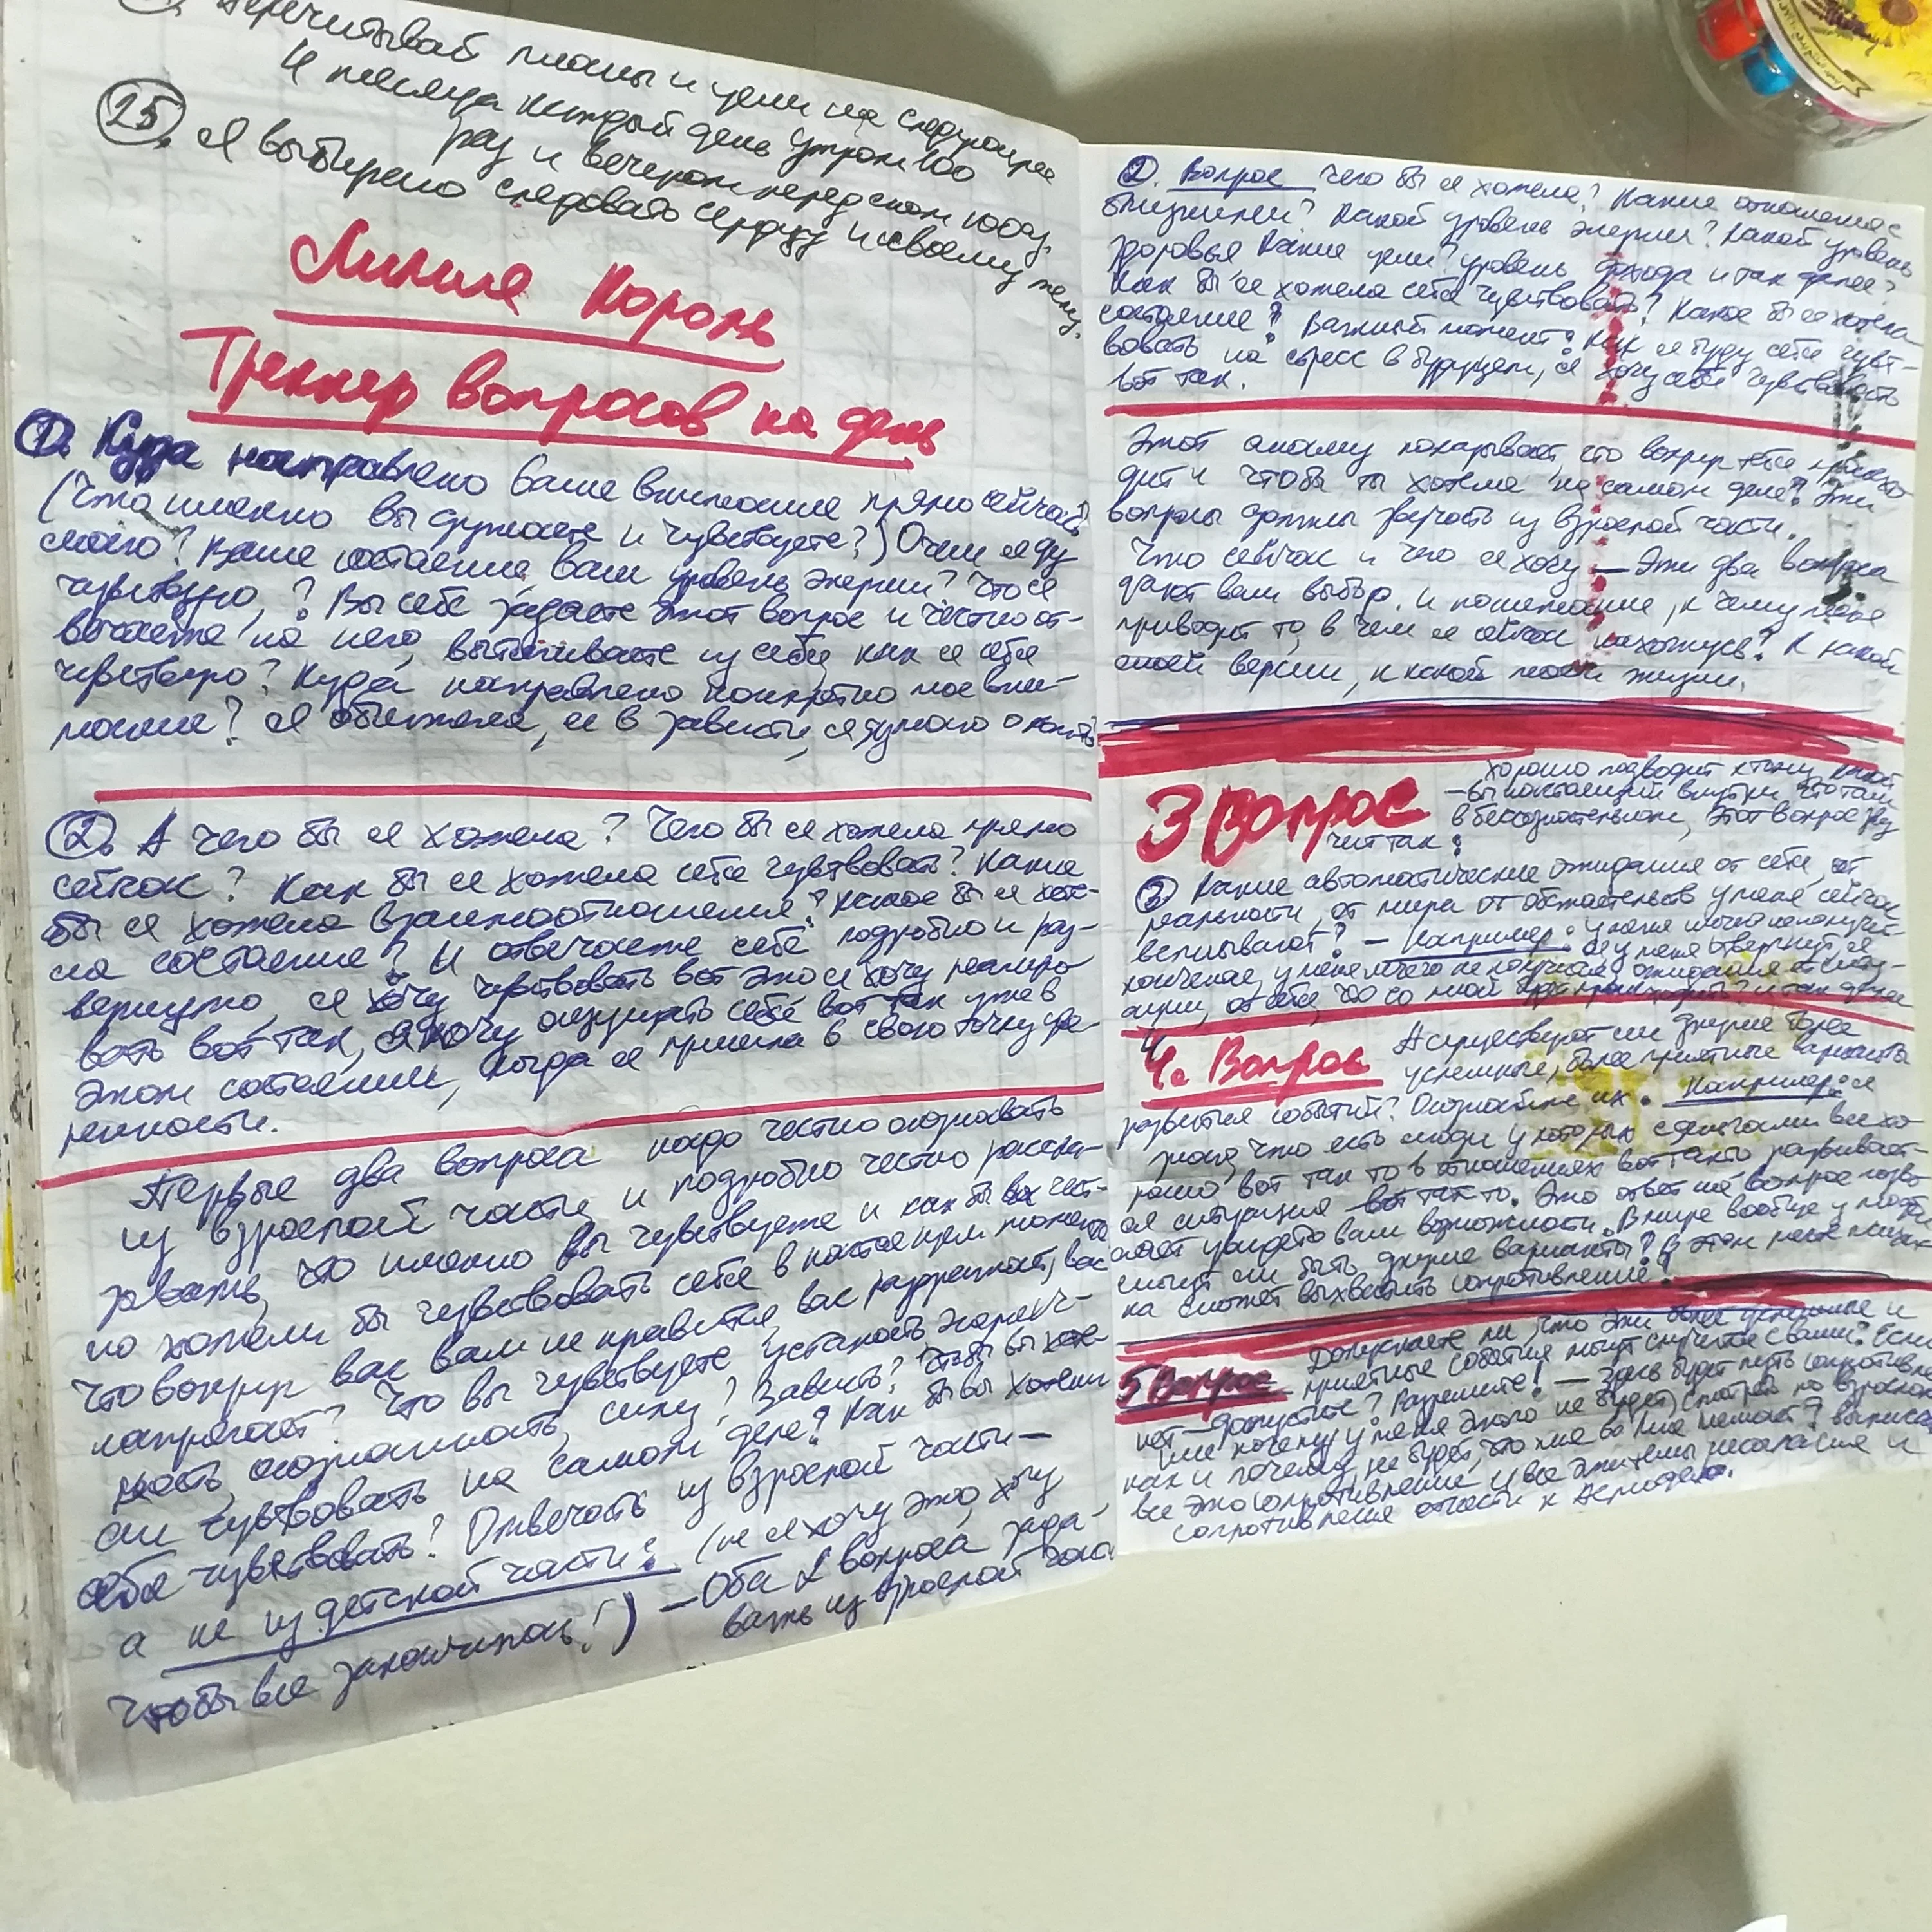 Перечитывай планы и цели на следующее
И месяца каждый день утром 100
раз и вечером перед сном 100 раз.
25. Я выбираю следовать сердцу и своему
Лилия Король
Треккер вопросов на день
1. Куда направлено Ваше внимание прямо сейчас?
(Что именно вы думаете и чувствуете?) О чем я ду
маю? Ваше состояние, ваш уровень энергии? Что я
чувствую,? Вы себе задаете этот вопрос и честно от-
вечаете на него, вытягиваете из себя, как я себя
чувствую? Куда направлено конкретно мое вни-
мание? Я обижена, я в зависти, я думаю о
2. А чего бы я хотела? Чего бы я хотела прямо
сейчас? Как бы я хотела себя чувствовать? Какие
бы я хотела взаимоотношения? Какое бы я хоте-
ла состояние? И отвечаете себе подробно и раз-
вернуто, я хочу чувствовать вот это я хочу реагиро
вать вот так, я хочу ощущать себя вот так уже в
этом состоянии, когда я пришла в свою точку уве-
ренности.
Первые два вопроса надо честно осознавать
из взрослой части и подробно честно расска-
зывать, что именно вы чувствуете и как бы вы чест-
но хотели бы чувствовать себя в настоящем моменте
Что вокруг вас вам не нравится, вас раздражает, вас
напрягает? Что вы чувствуете, усталость, энергич-
ность, осознанность, силу? Зависть? Что бы вы хоте-
ли чувствовать на самом деле? Как бы вы хотели
себя чувствовать? Отвечать из взрослой части —
а не из детской части: (не я хочу это, хочу
чтобы все закончилось!) — Оба 2 вопроса зада-
вать из взрослой части
2. Вопрос Чего бы я хотела? Какие отношения с
близкими? Какой уровень энергии? Какой уровень
здоровья Какие цели? уровень дохода и так далее?
Как бы я хотела себя чувствовать? Какое бы я хотела
состояние? Важный момент: Как я буду себя чувст-
вовать на стресс в будущем, я хочу себя чувствовать
вот так.
Этот анализ показывает, что вокруг тебя происхо
дит и что бы ты хотела на самом деле? Эти
вопросы должны звучать из взрослой части.
Что сейчас и чего я хочу — Эти два вопроса
дают вам выбор. и понимание, к чему меня
приводит то, в чем я сейчас нахожусь? К какой
моей версии, к какой моей жизни.
3 Вопрос хорошо подводит к тому, какой
вы настоящий внутри, что там
в бессознательном, Этот вопрос зву
чит так:
3 Какие автоматические ожидания от себя, от
реальности, от мира от обстоятельств у меня сейчас
всплывают? — Например: у меня ничего не получит-
ся, у меня ничего не получится, ожидания от ситу-
ации, от себя, что со мной и так далее
4. Вопрос А существуют ли другие более
успешные, более приятные варианты
развития событий? Осознайте их. Например: я
знаю, что есть люди у которых с деньгами все хо-
рошо вот так то в отношениях вот так то развивает-
ся ситуация вот так то. Это ответ на вопрос позво
ляет увидеть вам возможности. В мире вообще у людей
могут ли быть другие варианты? В этом месте психи
ка сможет выхватить сопротивление!
5 Вопрос Допускаете ли, что эти более успешные и
приятные события могут случится с вами? Если
нет — допустите? Разрешите! — Здесь будет путь сопротивле
ние почему у меня этого не будет, смотрей по взрослому
как и почему не будет, что мне во мне мешает?
все это сопротивление и все эти темы несогласия и
сопротивления отнести к